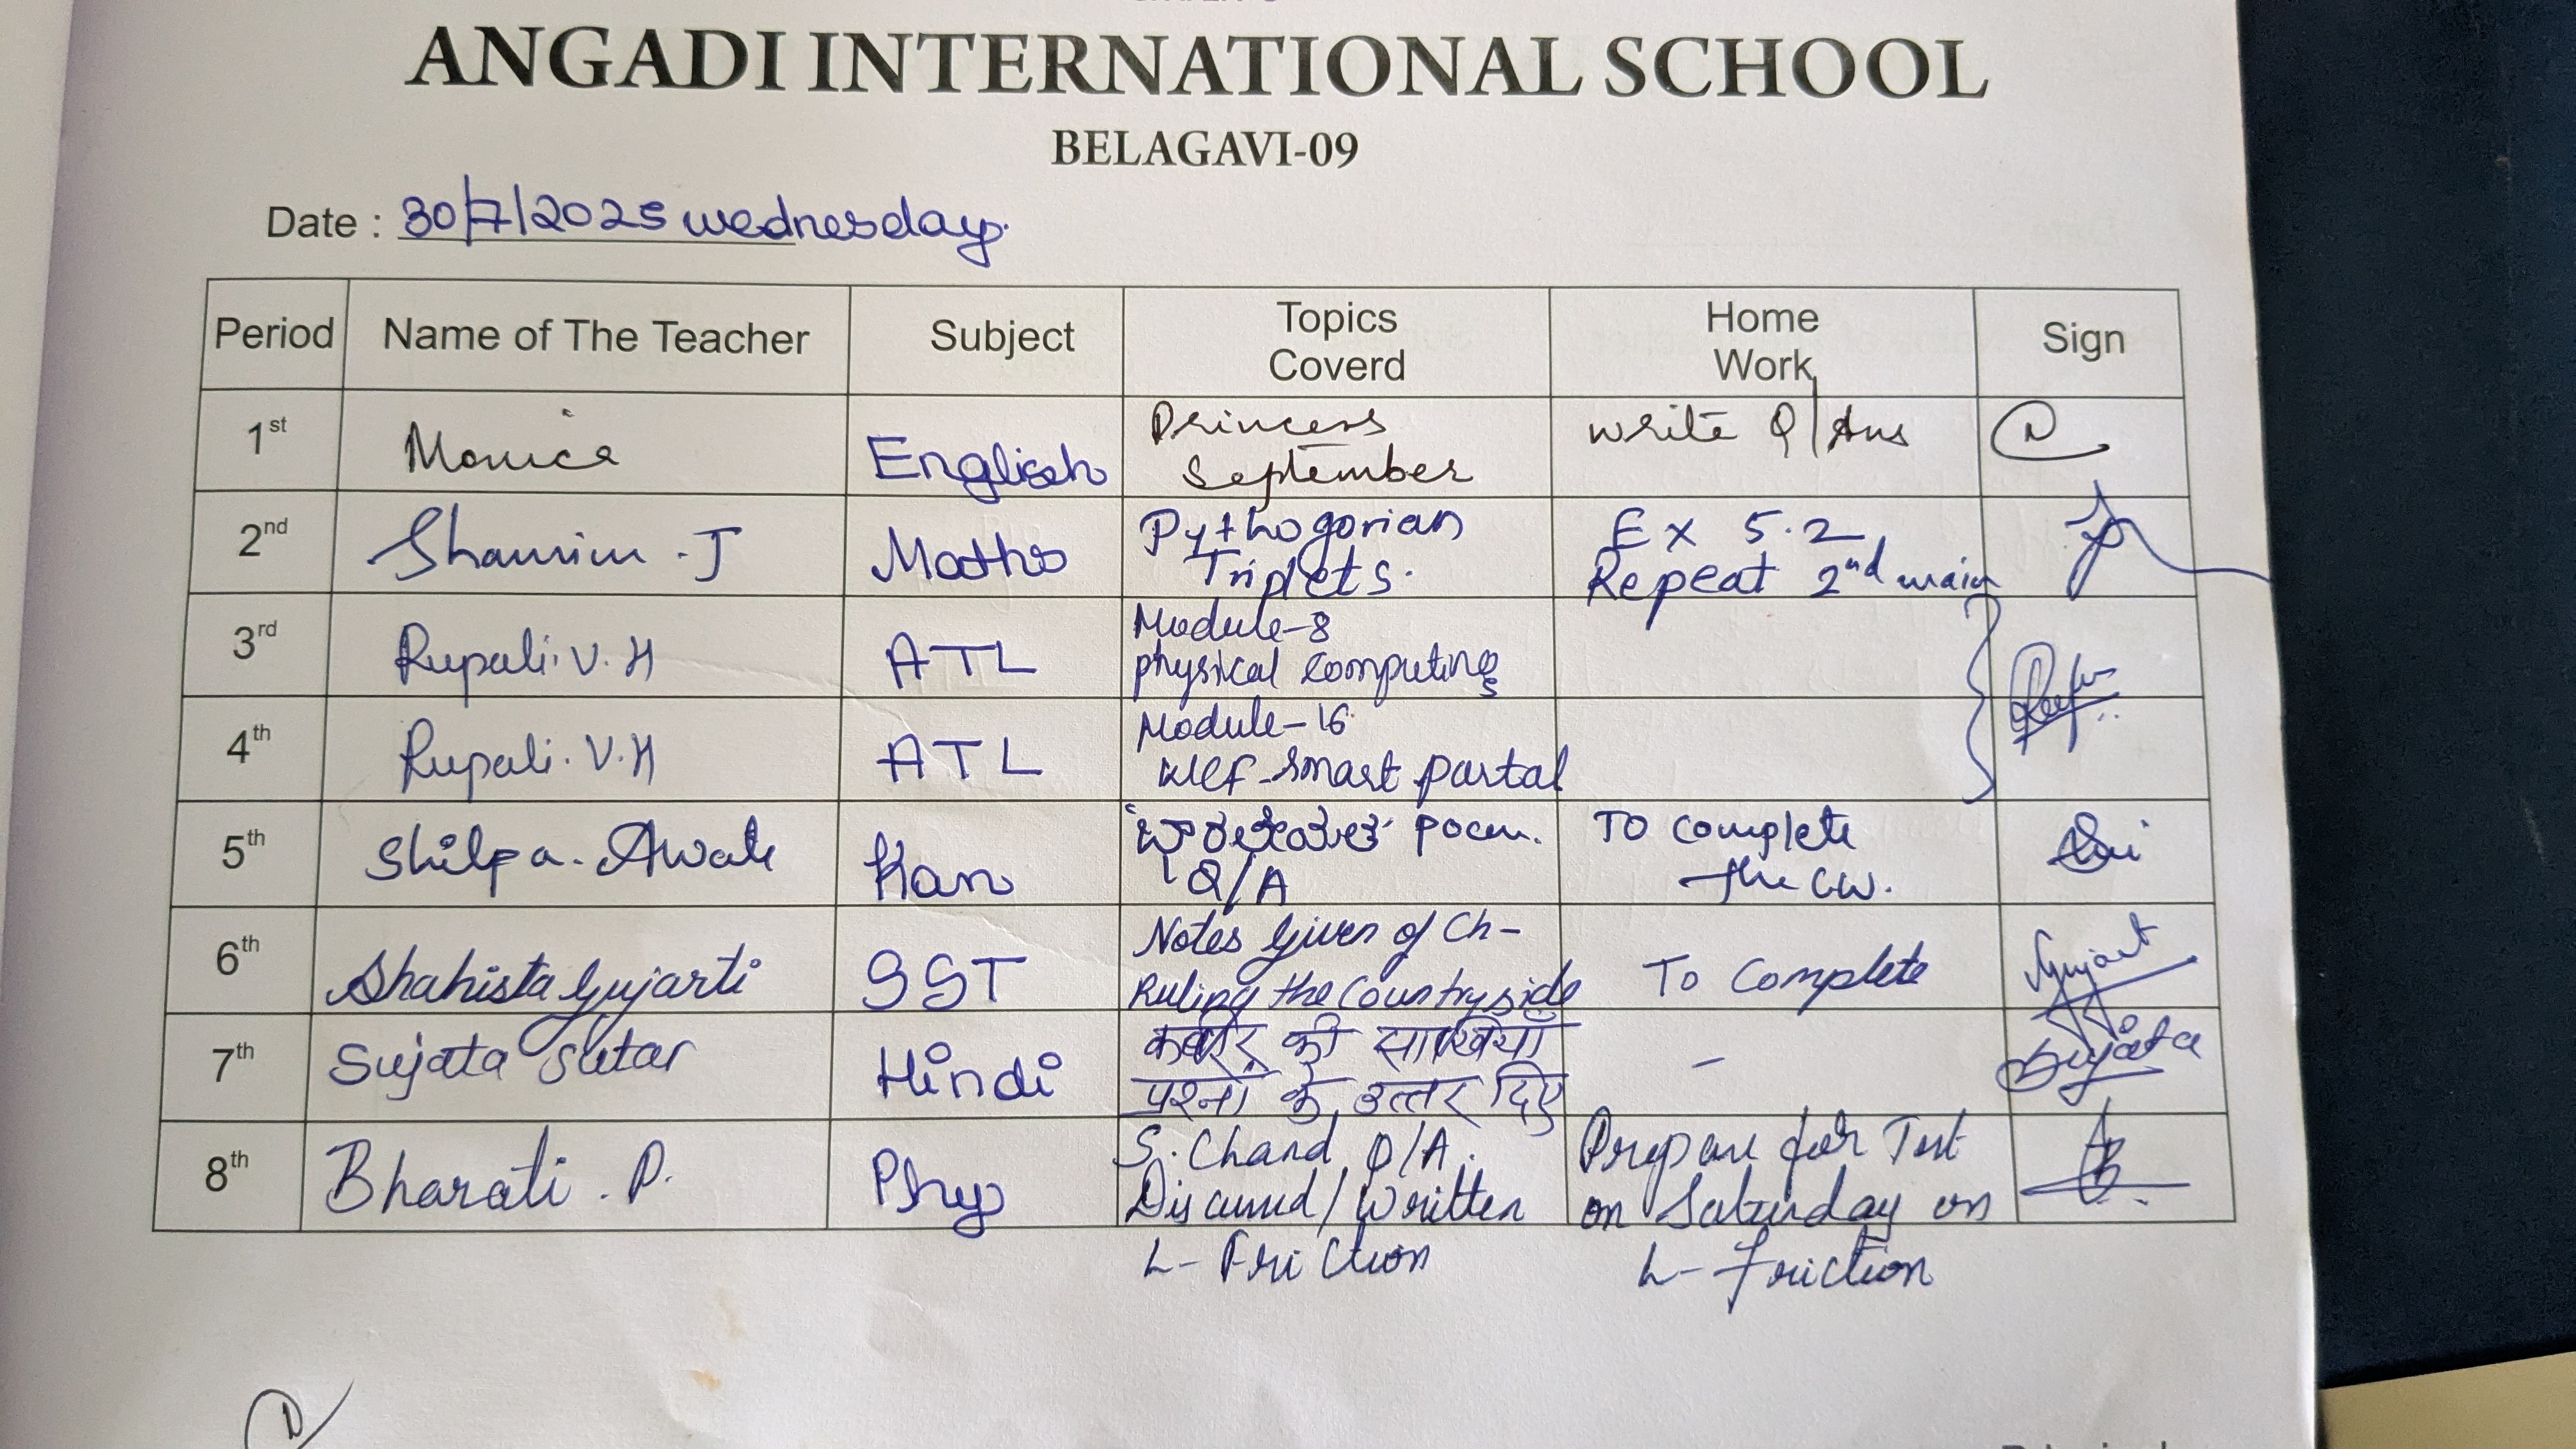 ANGADI INTERNATIONAL SCHOOL
BELAGAVI-09
Date : 30/7/2025 wednesday.
Period Name of The Teacher Subject Topics Coverd Home Work Sign
1st Monica English Princess September write Q/Ans
2nd Shamim . J Maths Pythogorian Triplets. Ex 5.2 Repeat 2nd main
3rd Rupali. V. H ATL Module-8 physical computing
4th Rupali. V. H ATL Module-16 smart portal
5th Shilpa. Awale Kan poem. Q/A To complete the CW.
6th Shahista Gujarti SST Notes Given of Ch- Ruling the Countryside To Complete Gujart
7th Sujata Sutar Hindi कबीर की साखियाँ प्रश्नों के उत्तर दिए - Sujata
8th Bharati . P. Phy S. Chand Q/A. Discussed/Written L- Friction Prepare for Test on Saturday on L- Friction